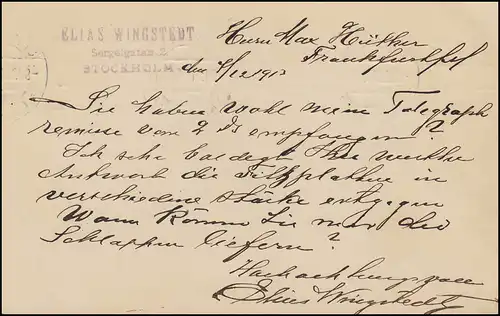 ELIAS WINGSTEDT
Sergelgatan 2.
STOCKHOLM
Herrn Max Hüther
Frankfurt
den 4/12 1913
Sie haben wohl meine Telegraph
remisse vom 2 ds empfangen?
Ich sehe baldegst Ihre werthe
Antwort die Filzplatten in
verschiedene stärke entgegen
Wann können Sie mir die
Schlappen liefern?
Hochachtungsvoll
Elias Wingstedt